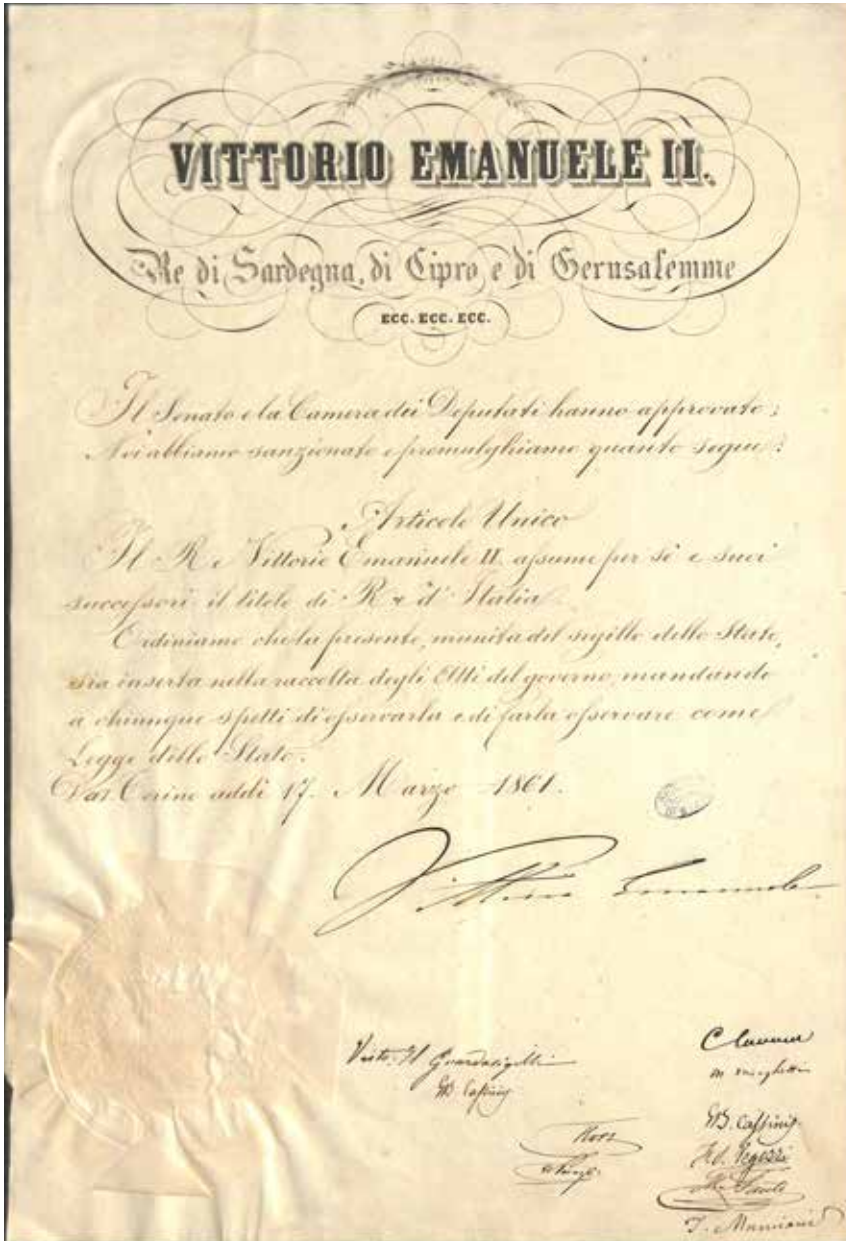 VITTORIO EMANUELE II.
Re di Sardegna, di Cipro e di Gerusalemme
ECC. ECC. ECC.
Il Senato e la Camera dei Deputati hanno approvato;
Noi abbiamo sanzionato e promulghiamo quanto segue:
Articolo Unico
Il Re Vittorio Emanuele II assume per sè e suoi
successori il titolo di Re d'Italia.
Ordiniamo che la presente, munita del sigillo dello Stato,
sia inserta nella raccolta degli Atti del governo, mandando
a chiunque spetti di osservarla e di farla osservare come
Legge dello Stato.
Dat. Torino addì 17. Marzo 1861.
Vittorio Emanuele
Visto: Il Guardasigilli
GB. Cassinis
C Cavour
M Minghetti
GB. Cassinis
F. S. Vegezzi
T. Mamiani